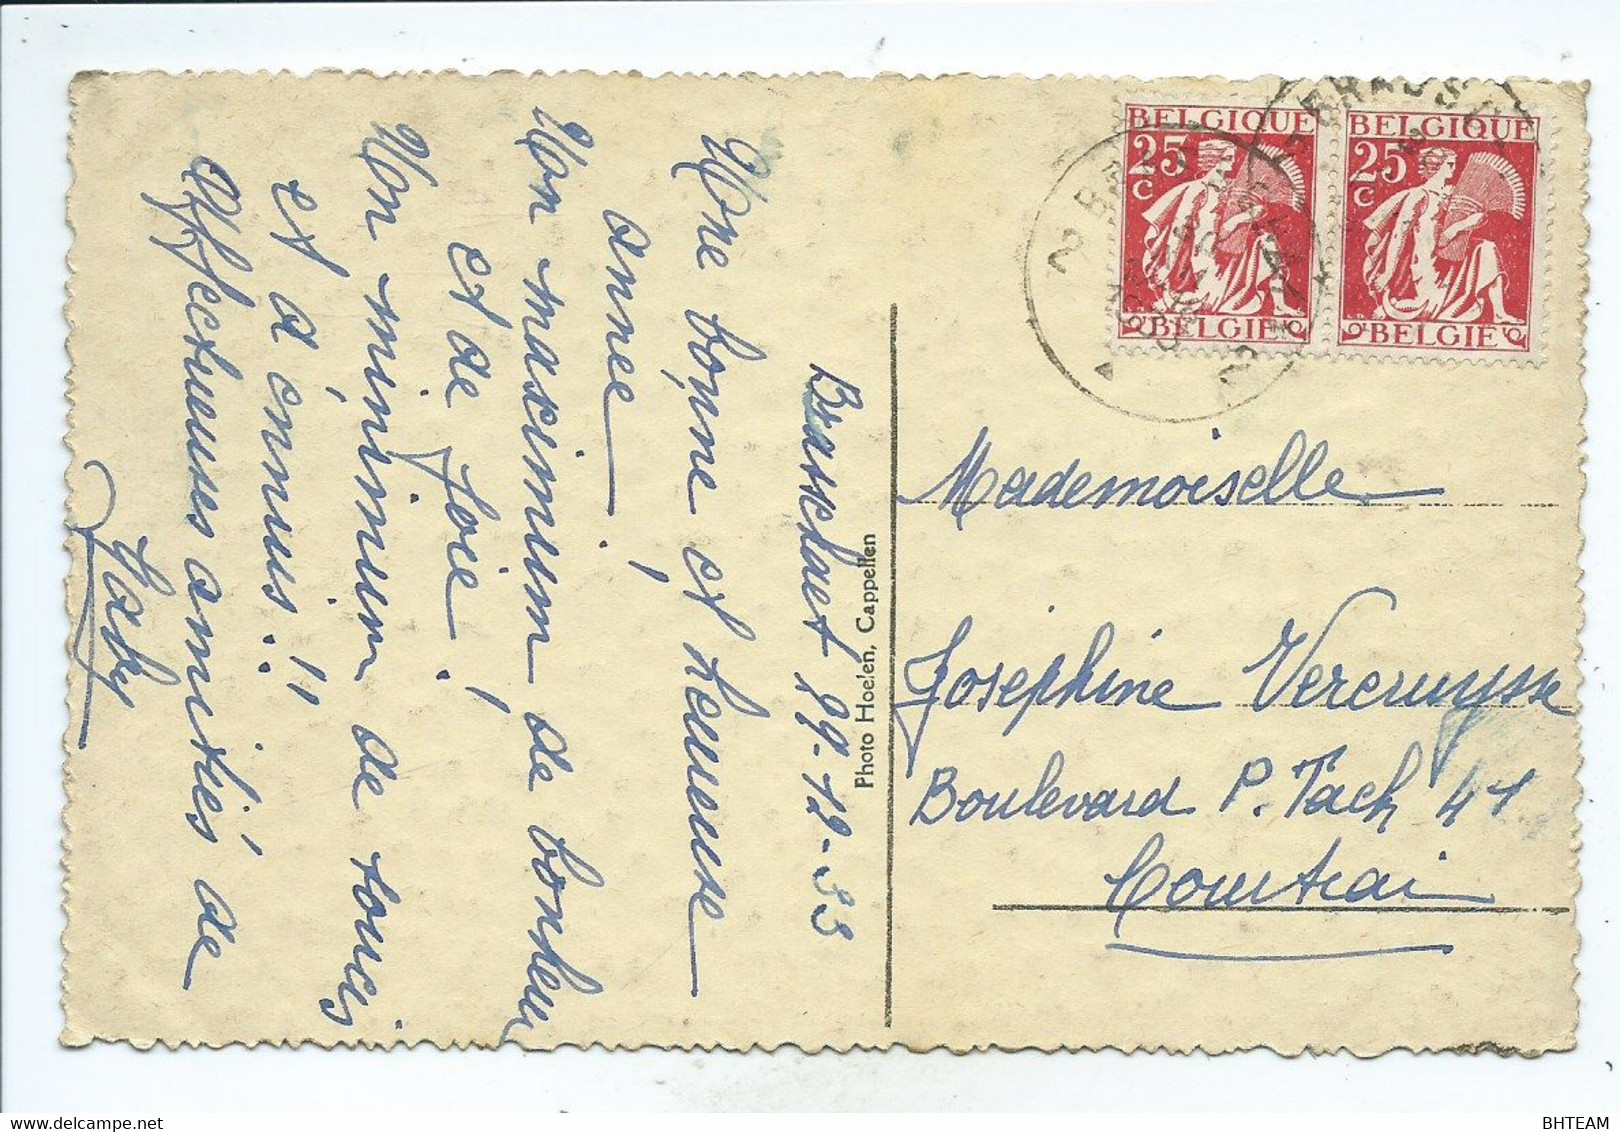 Brasschaet 29-12-33
Une bonne et heureuse
année !
Un maximum de bonheur
et de joie !
Un minimum de soucis
et d'ennuis !!
Affectueuses amitiés de
Gaby
Photo Hoelen, Cappellen
BELGIQUE
25
C
BELGIE
BELGIQUE
25
C
BELGIE
Mademoiselle
Josephine Vercruysse
Boulevard P. Tack 41
Courtrai
BHTEAM